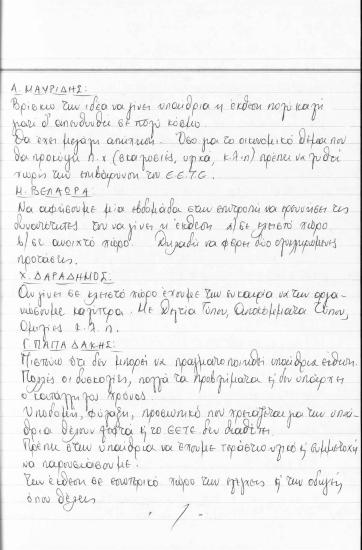 Α. ΜΑΥΡΙΔΗΣ:
Βρίσκω την ιδέα να γίνει υπαίθρια η έκθεση πολύ καλή
γιατί θ' απευθυνθεί σε πολύ κόσμο.
Θα έχει μεγάλη απήχηση. Όσο για το οικονομικό θέμα που
θα προκύψει π.χ (εταιρείες, υλικά, κ.λ.π) πρέπει να λυθεί
χωρίς την επιβάρυνση του Ε.Ε.Τ.Ε.
Μ. ΒΕΛΑΩΡΑ:
Να αφήσουμε μία εβδομάδα στην επιτροπή να ερευνήσει τις
δυνατότητες του να γίνει η έκθεση α) σε κλειστό χώρο
β) σε ανοιχτό χώρο. Δηλαδή να φέρει δύο ολοκληρωμένες
προτάσεις.
Χ. ΔΑΡΑΔΗΜΟΣ:
Αν γίνει σε κλειστό χώρο έχουμε την ευκαιρία να την οργα-
νώσουμε καλύτερα. Με Δελτία Τύπου, Αποκόμματα Τύπου,
Ομιλίες κ.λ.π.
Γ. ΠΑΠΑΔΑΚΗΣ:
Πιστεύω ότι δεν μπορεί να πραγματοποιηθεί υπαίθρια έκθεση.
Πολλές οι δυσκολίες, πολλά τα προβλήματα κ' δεν υπάρχει
ο κατάλληλος χρόνος.
Υποδομή, φύλαξη, προσωπικό που χρειάζεται για την υπαί-
θρια θέλουν λεφτά κ' το ΕΕΤΕ δεν διαθέτει.
Πρέπει στην υπαίθρια να έχουμε τεράστιο υλικό κ' συμμετοχή
να παρουσιάσουμε.
Την έκθεση σε εσωτερικό χώρο την ελέγχεις κ' την οδηγείς
όπου θέλεις